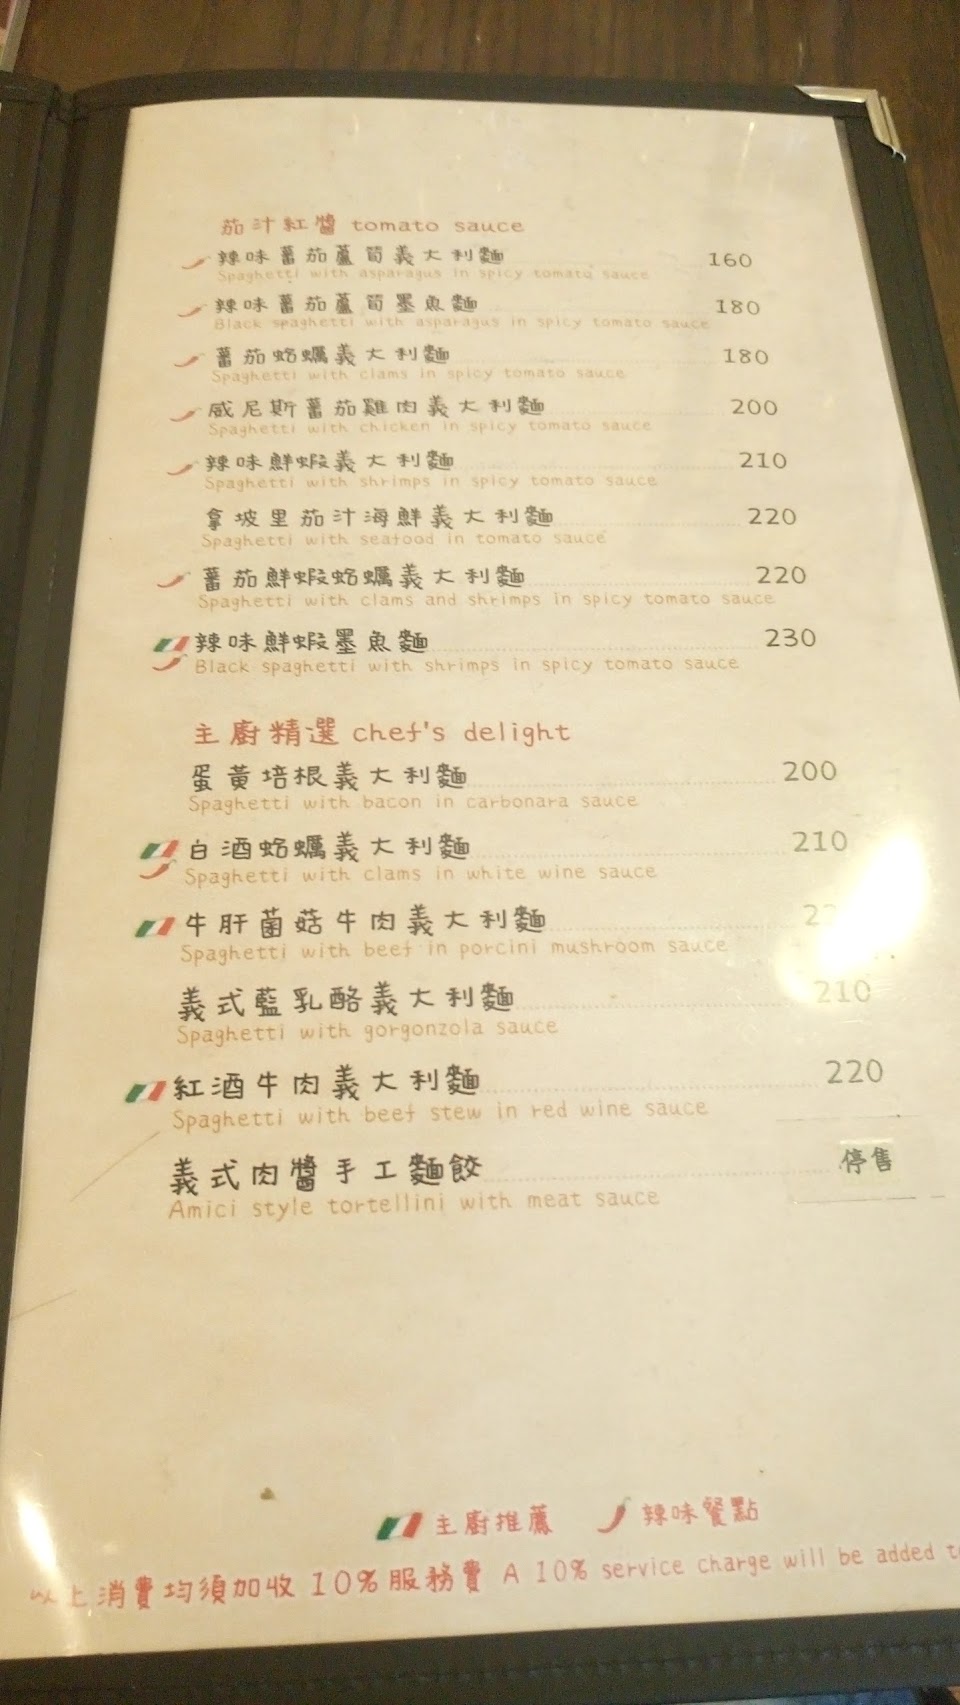 茄汁紅醬 tomato sauce
辣味蕃茄蘆筍義大利麵 160
Spaghetti with asparagus in spicy tomato sauce
辣味蕃茄蘆筍墨魚麵 180
Black spaghetti with asparagus in spicy tomato sauce
蕃茄蛤蠣義大利麵 180
Spaghetti with clams in spicy tomato sauce
威尼斯蕃茄雞肉義大利麵 200
Spaghetti with chicken in spicy tomato sauce
辣味鮮蝦義大利麵 210
Spaghetti with shrimps in spicy tomato sauce
拿坡里茄汁海鮮義大利麵 220
Spaghetti with seafood in tomato sauce
蕃茄鮮蝦蛤蠣義大利麵 220
Spaghetti with clams and shrimps in spicy tomato sauce
辣味鮮蝦墨魚麵 230
Black spaghetti with shrimps in spicy tomato sauce
主廚精選 chef's delight
蛋黃培根義大利麵 200
Spaghetti with bacon in carbonara sauce
白酒蛤蠣義大利麵 210
Spaghetti with clams in white wine sauce
牛肝菌菇牛肉義大利麵
Spaghetti with beef in porcini mushroom sauce
義式藍乳酪義大利麵 210
Spaghetti with gorgonzola sauce
紅酒牛肉義大利麵 220
Spaghetti with beef stew in red wine sauce
義式肉醬手工麵餃 停售
Amici style tortellini with meat sauce
主廚推薦 辣味餐點
以上消費均須加收 10% 服務費 A 10% service charge will be added